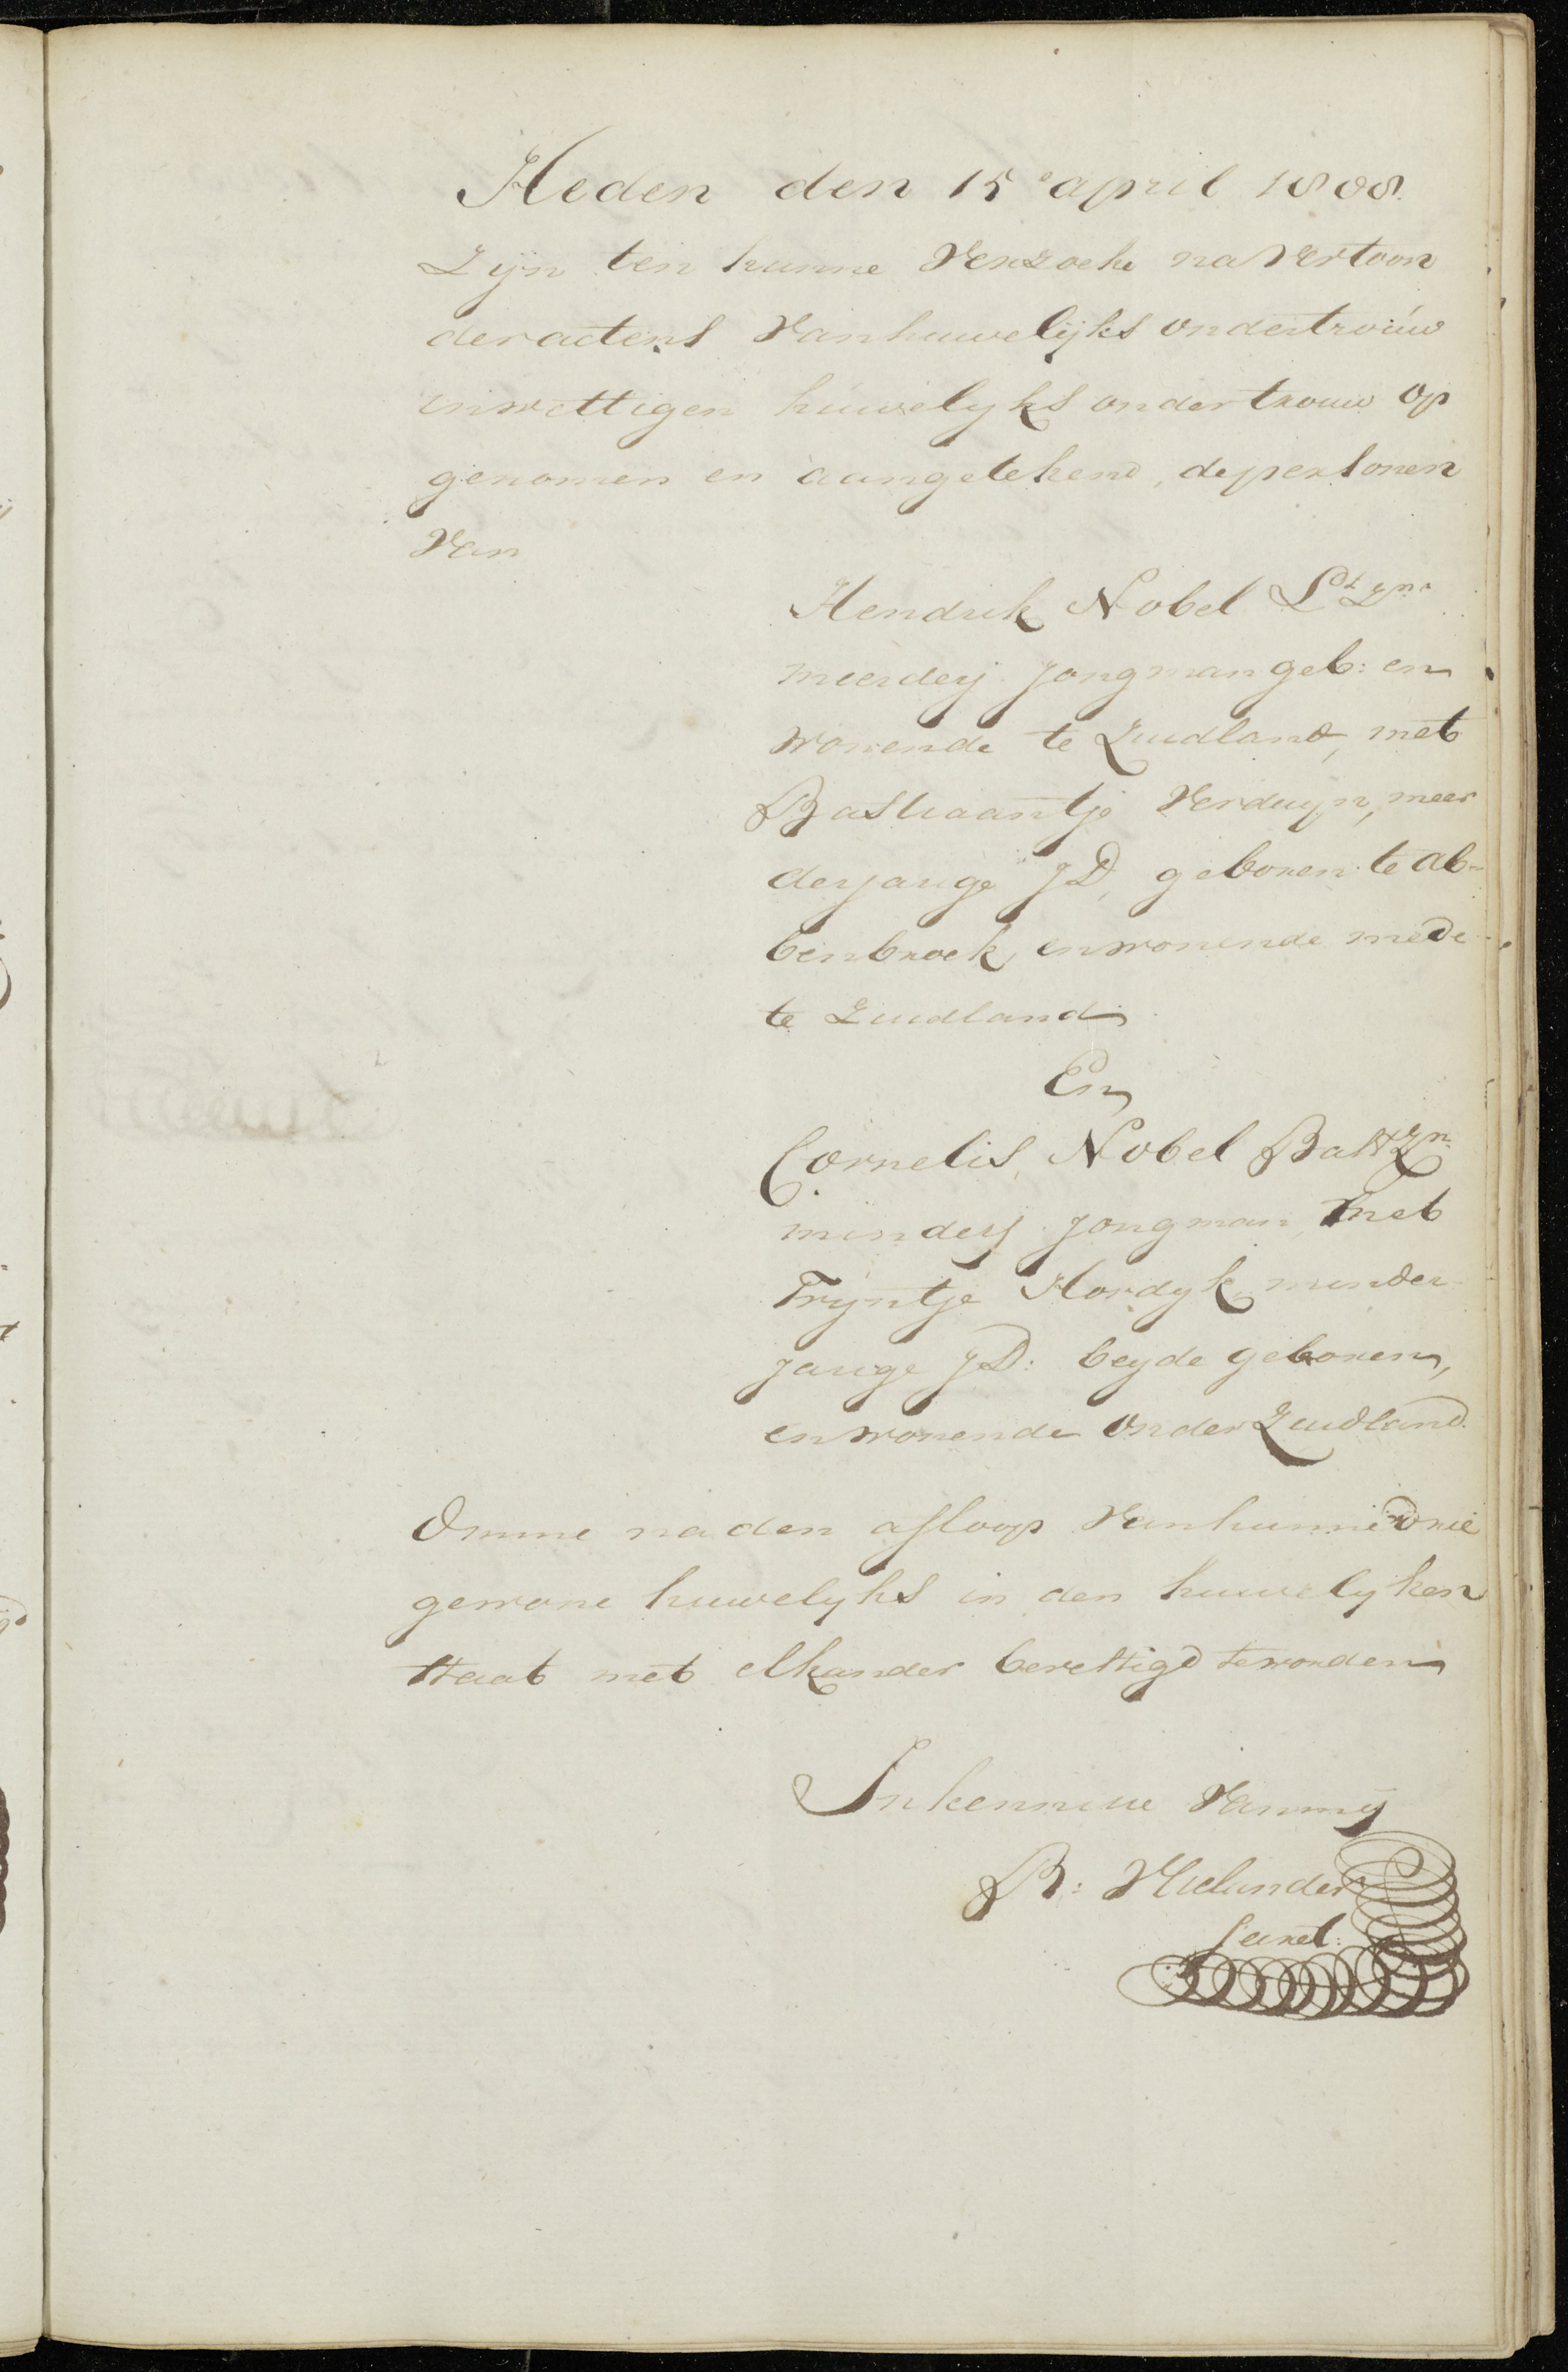 Heden den 15e april 1808.
Zijn ten hunne Verzoeke na Vertoon
der actens Van huwelijks ondertrouw
in wettigen huwelyks ondertrouw op
genomen en aangetekend, de persoonen
Van
Hendrik Nobel Lt Zn.
meerderj. Jongman geb: en
wonende te Zuidland, met
Bastiaantje Verduyn, meer
derjarige JD, geboren te ab-
benbroek, en wonende mede
te Zuidland
En
Cornelis Nobel Bast Zn.
minderj. Jongman, met
Tryntje Hordyk, minder-
jarige JD: beyde geboren,
en wonende onder Zuidland.
Omme na den afloop Van hunne drie
gewone huwelyks in den huwelyken
staat met elkander bevettigd te worden
In kennisse Van mij
B: Vielander
Secret: